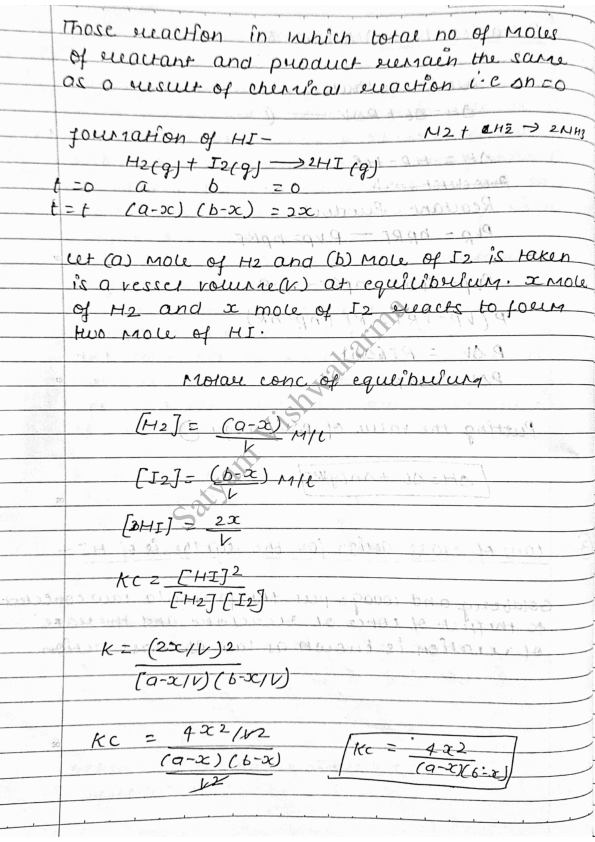 Those reaction in which total no of Moles
of reactant and product remain the same
as a result of chemical reaction i.e Δn=0
formation of HI-
N2 + 2H2 → 2NH3
H2(g) + I2(g) → 2HI(g)
t=0 a b =0
t=t (a-x) (b-x) =2x
Let (a) mole of H2 and (b) mole of I2 is taken
is a vessel volume(v) at equilibrium. x mole
of H2 and x mole of I2 reacts to form
two mole of HI.
Molar conc. of equilibrium
[H2] = (a-x)/V M/l
[I2] = (b-x)/V M/l
[2HI] = 2x/V
Kc = [HI]2/[H2][I2]
K = (2x/V)2/[a-x/V)(b-x/V)
Kc = 4x2/V2/(a-x)(b-x)/V2
Kc = 4x2/(a-x)(b-x)
Satyam Vishwakarma